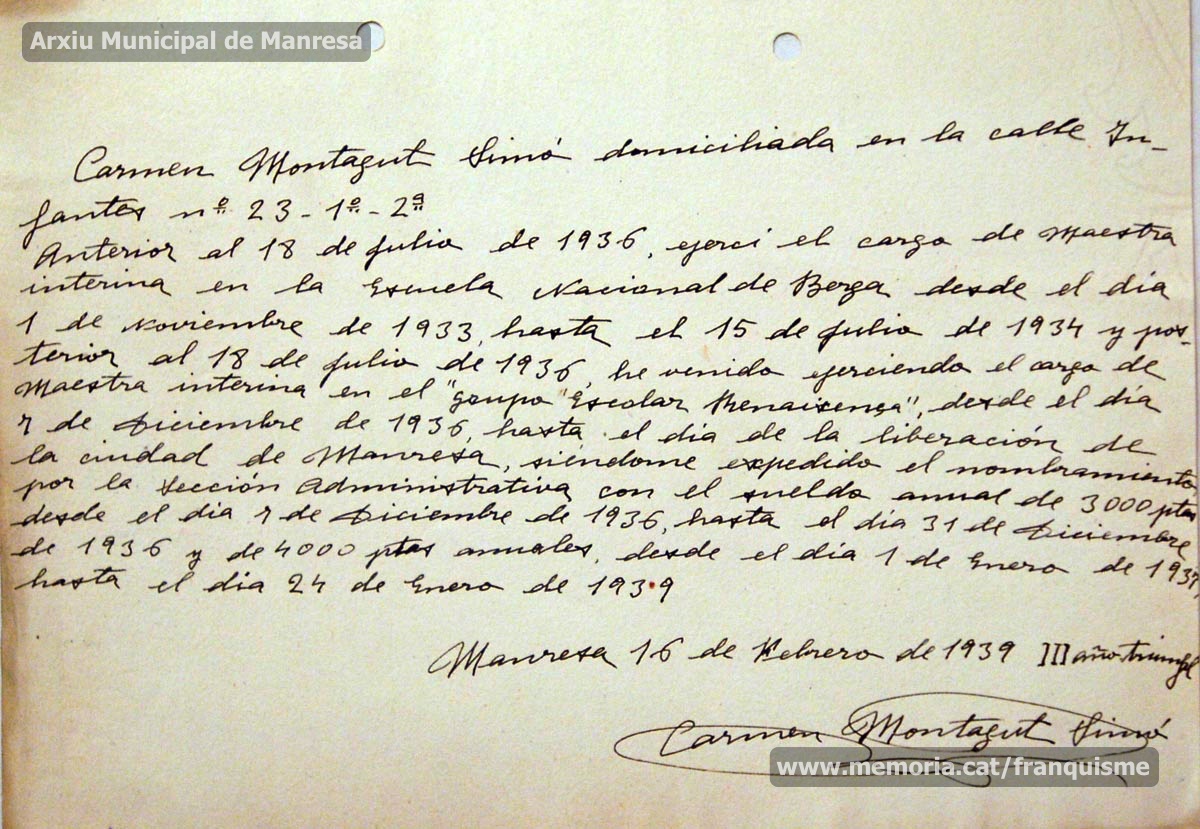 Arxiu Municipal de Manresa
Carmen Montagut Simó domiciliada en la calle In-
fantes nº 23 - 1º - 2ª
Anterior al 18 de julio de 1936, ejercí el cargo de Maestra
interina en la Escuela Nacional de Berga desde el día
1 de Noviembre de 1933, hasta el 15 de julio de 1934 y pos-
terior al 18 de julio de 1936, he venido ejerciendo el cargo de
Maestra interina en el "Grupo "Escolar Renaixensa", desde el día
7 de Diciembre de 1936, hasta el día de la liberación de
la ciudad de Manresa, siéndome expedido el nombramiento
por la Sección Administrativa con el sueldo anual de 3000 ptas
desde el dia 7 de Diciembre de 1936, hasta el día 31 de Diciembre
de 1936 y de 4000 ptas anuales, desde el dia 1 de Enero de 1937,
hasta el dia 24 de Enero de 1939
Manresa 16 de Febrero de 1939 III año triunfal
Carmen Montagut Simó
www.memoria.cat/franquisme